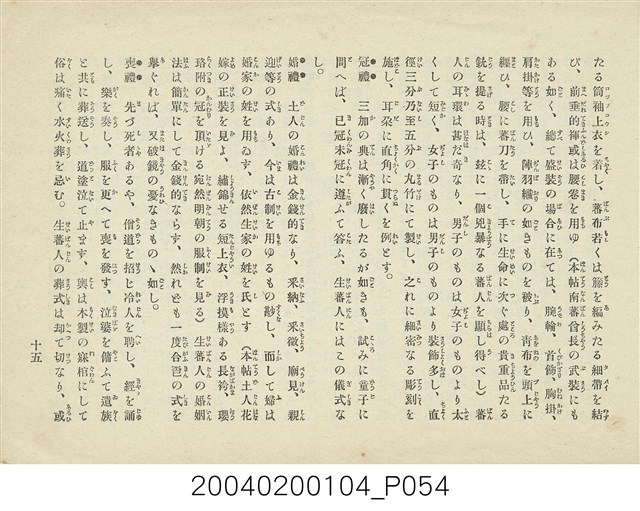 たる筒袖上衣を着し、蕃布若くは籐を編みたる細帶を結
び、前垂的褌或は腰卷を用ゆ（本帖南蕃酋長の武裝にも
ある如く、總て盛裝の場合に在ては、腕輪、首飾、胸掛、
肩掛等を用ひ、陣羽織の如きものを被り、靑布を頭上に
纒ひ、腰に蕃刀を帶し、手に生命に次ぐ處の貴重品たる
銃を提る時は、玆に一個兇暴なる蕃人を顯し得べし）蕃
人の耳環は甚だ奇なり、男子のものは女子のものより太
くして短く、女子のものは男子のものより裝飾多し、直
徑三分乃至五分の丸竹にて製し、之れに細密なる彫刻を
施し、耳朶に直角に貫くを例とす。
冠禮 三加の典は漸く廢したるが如きも、試みに童子に
問へば、已冠未冠に遊ふて答ふ、生蕃人にはこの儀式な
し。
婚禮 土人の婚禮は金錢的なり、釆納、釆徵、廟見、親
迎等の式あり、今は古制を用ゆるもの尠し、而して婦は
婚家の姓を用ゐず、依然生家の姓を氏とす（本帖土人花
嫁の正裝を見よ、繡錦せる短上衣、浮摸樣ある長袴、瓔
珞附の冠を頂ける宛然明朝の服制を見る）生蕃人の婚姻
法は簡單にして金錢的ならず、然れども一度合巹の式を
擧ぐれば、又破鏡の憂なきものゝ如し。
喪禮 先づ死者あるや、僧道を招じ冷人を聘し、經を誦
し、樂を奏し、服を更へて喪を發す、泣婆を傭ふて遺族
と共に葬送し、道塗泣て止まず、輿は木製の寐棺にして
俗は痛く水火葬を忌む。 生蕃人の葬式は却て切なり、或
十五
20040200104_P054